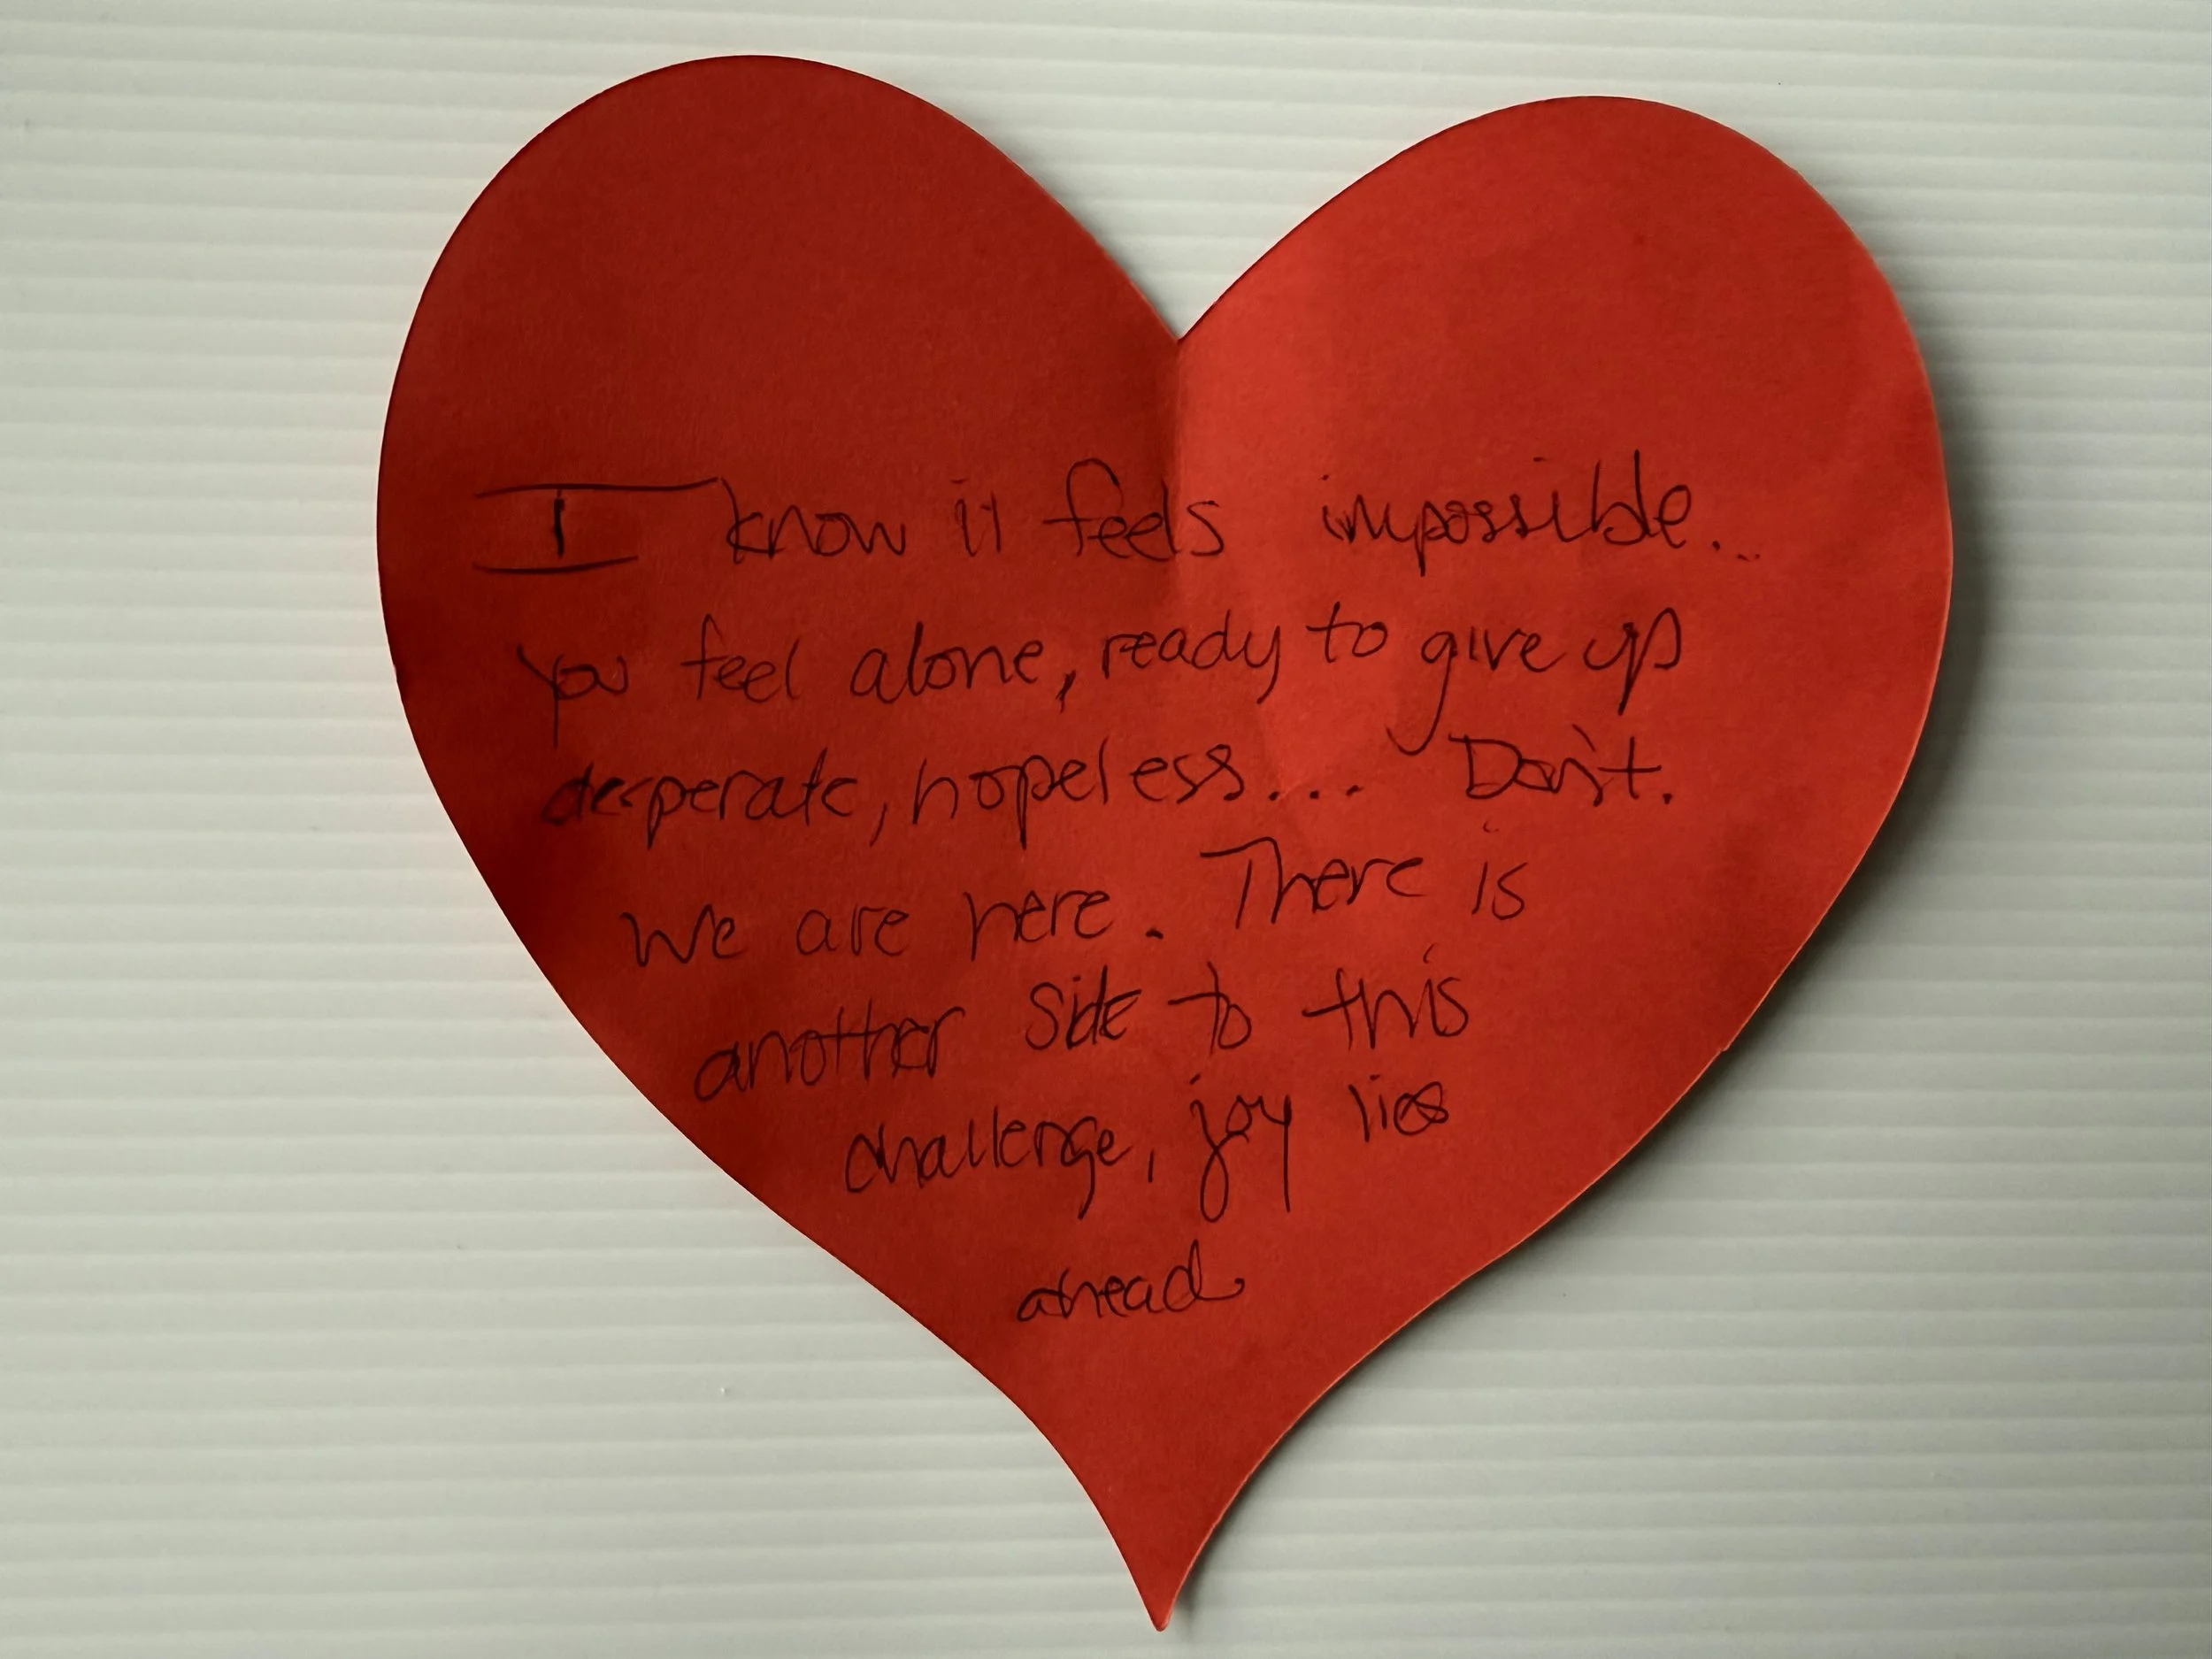 I know it feels impossible...
you feel alone, ready to give up
desperate, hopeless... Don't.
We are here. There is
another side to this
challenge, joy lies
ahead